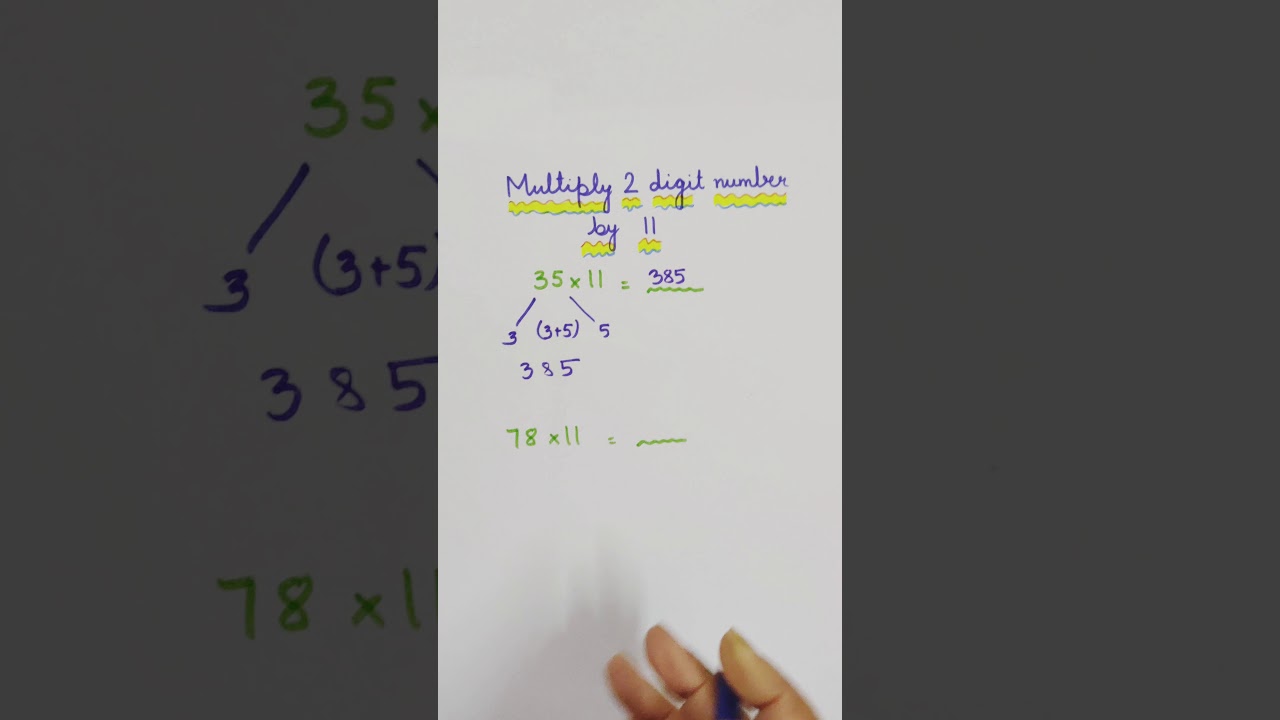 Multiply 2 digit number
by 11
35 × 11 = 385
3 (3+5) 5
385
78 × 11 =